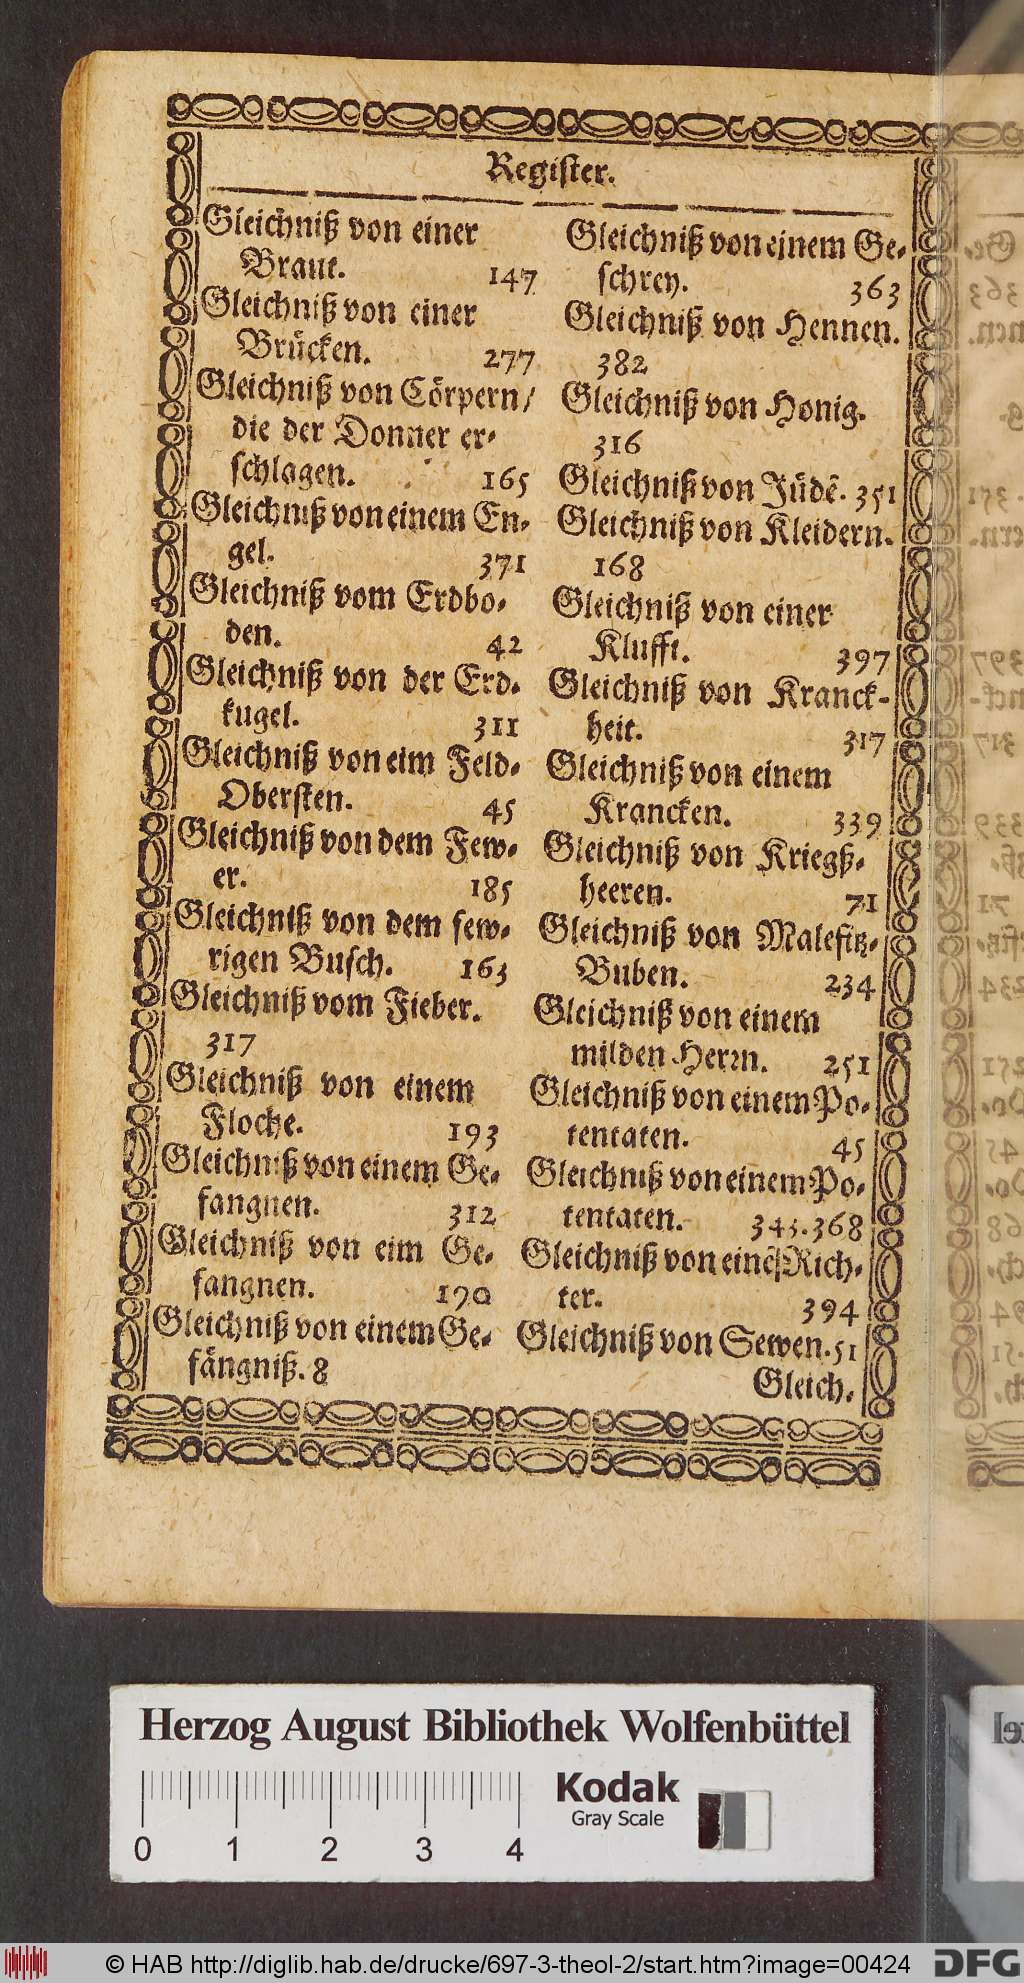 Register.
Gleichniß von einer
Braut. 147
Gleichniß von einer
Brücken. 277
Gleichniß von Cörpern/
die der Donner er-
schlagen. 165
Gleichniß von einem En-
gel. 371
Gleichniß vom Erdbo-
den. 42
Gleichniß von der Erd-
kugel. 311
Gleichniß von eim Feld-
Obersten. 45
Gleichniß von dem Few-
er. 185
Gleichniß von dem few-
rigen Busch. 163
Gleichniß vom Fieber.
317
Gleichniß von einem
Floche. 193
Gleichniß von einem Ge-
fangnen. 312
Gleichniß von eim Ge-
fangnen. 190
Gleichniß von einem Ge-
fängniß. 8
Gleichniß von einem Ge-
schrey. 363
Gleichniß von Hennen.
382
Gleichniß von Honig.
316
Gleichniß von Jüdẽ. 351
Gleichniß von Kleidern.
168
Gleichniß von einer
Klufft. 397
Gleichniß von Kranck-
heit. 317
Gleichniß von einem
Krancken. 339
Gleichniß von Kriegß-
heeren. 71
Gleichniß von Malefitz-
Buben. 234
Gleichniß von einem
milden Herrn. 251
Gleichniß von einem Po-
tentaten. 45
Gleichniß von einem Po-
tentaten. 345.368
Gleichniß von einẽ Rich-
ter. 394
Gleichniß von Sewen. 51
Gleich.
Herzog August Bibliothek Wolfenbüttel
Kodak
Gray Scale
0 1 2 3 4
© HAB http://diglib.hab.de/drucke/697-3-theol-2/start.htm?image=00424
DFG